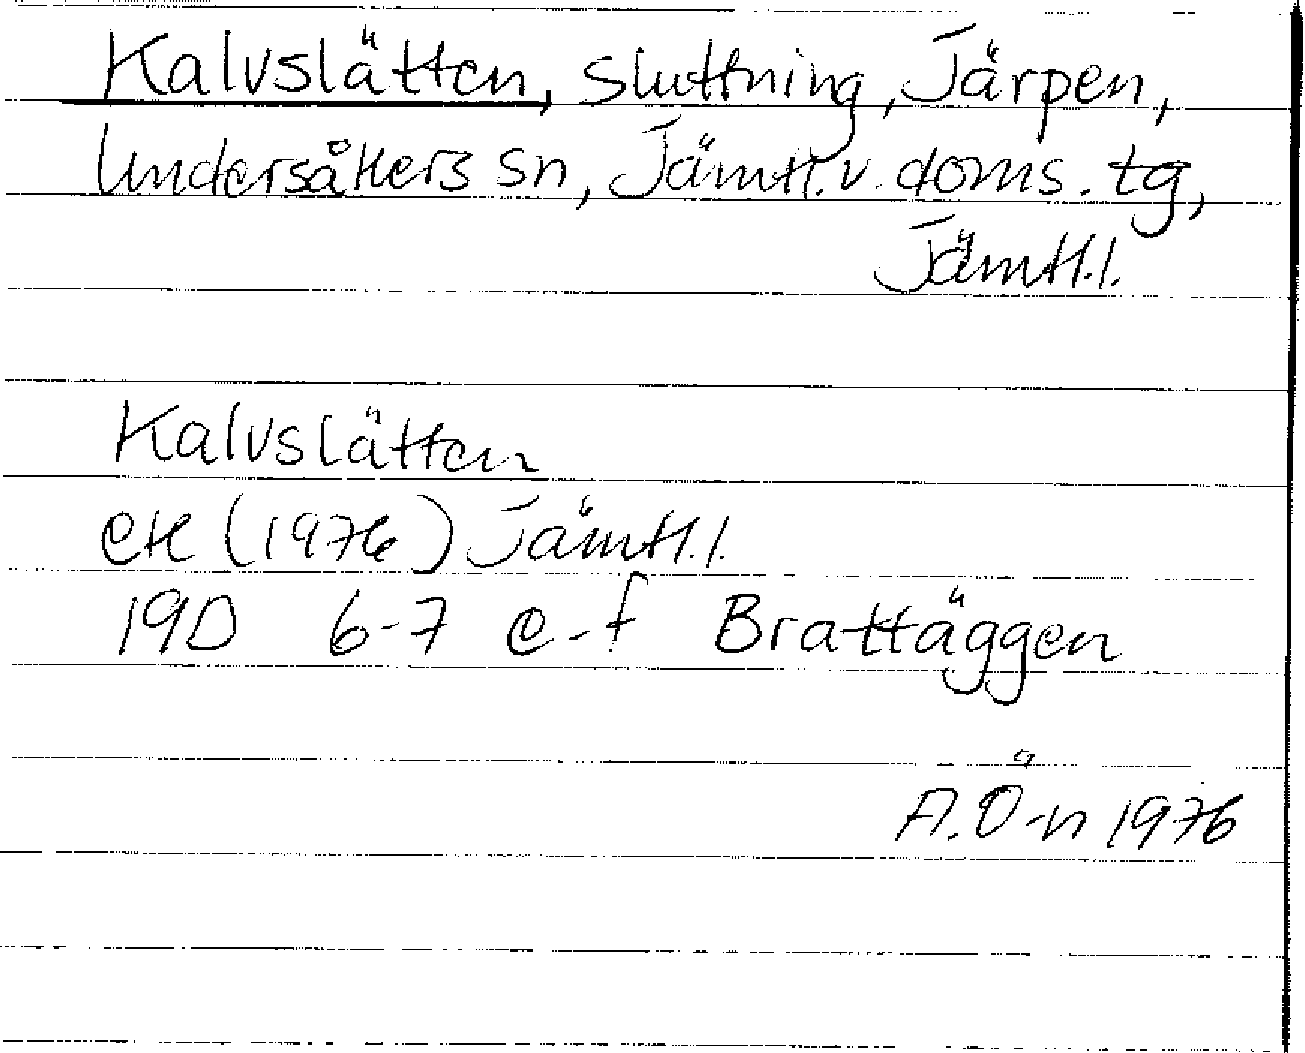 Kalvslätten, sluttning, Järpen,
Undersåkers sn, Jämtl. v. doms. tg,
Jämtl. l.
Kalvslätten
ek (1976) Jämtl. l.
19D 6-7 e-f Brattäggen
A. Ö-n 1976